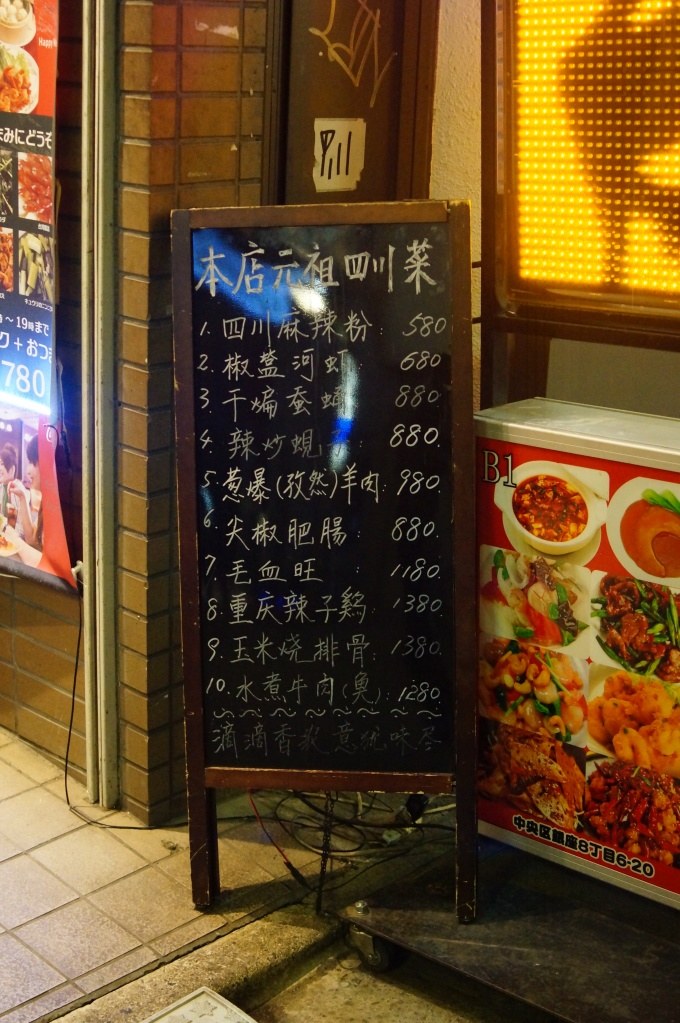 本店元祖四川菜
1. 四川麻辣粉: 580
2. 椒盐河虾: 680
3. 干煸蚕蛹 880
4. 辣炒蜆子 880.
5. 葱爆(孜然)羊肉: 980.
6. 尖椒肥腸: 880.
7. 毛血旺 : 1180.
8. 重庆辣子鶏: 1380.
9. 玉米烧排骨: 1380.
10. 水煮牛肉(魚): 1280.
滴滴香
味
四川
みにどうぞ
～19時まで
780
B1
中央区銀座8丁目6-20